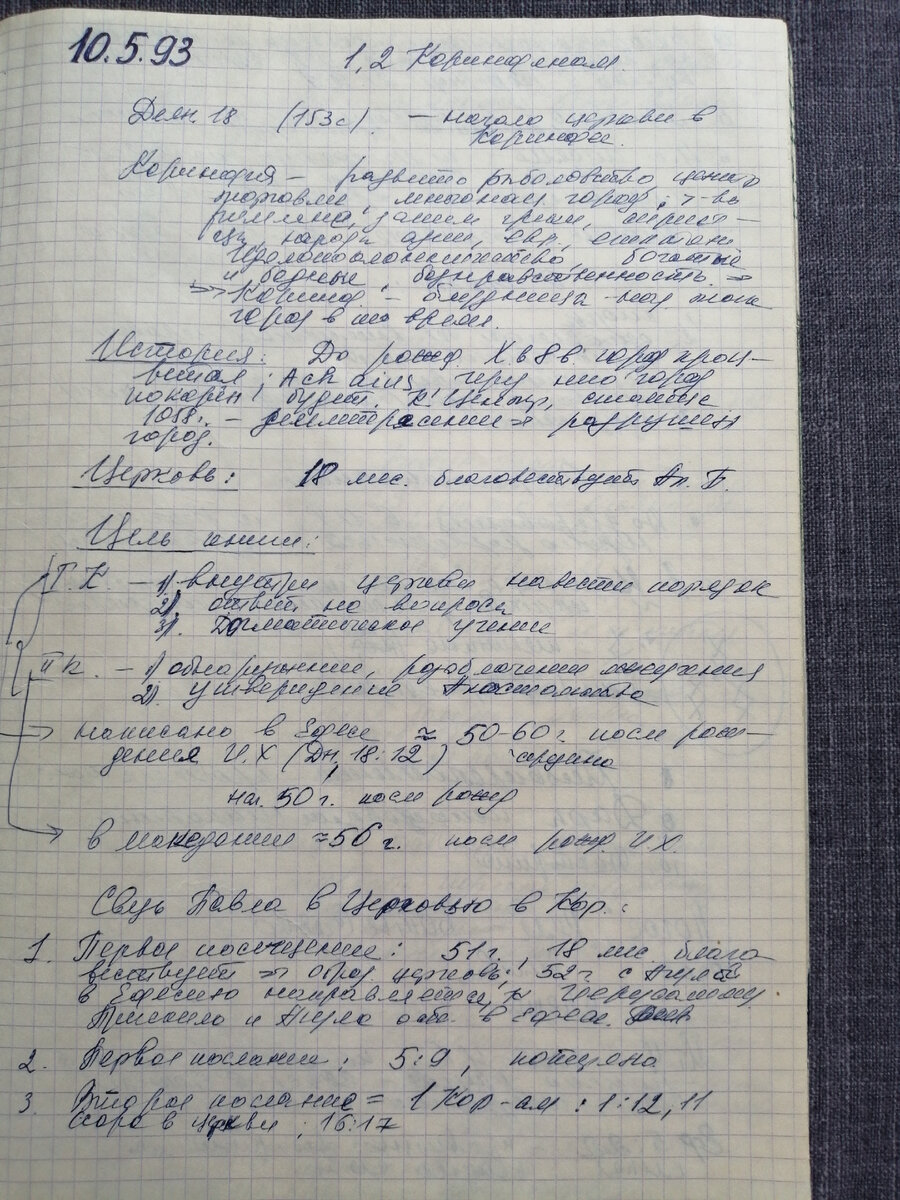 10.5.93
1,2 Коринфянам.
Деян. 18 (153с) — начало церкви в
Коринфе.
Коринфия — развито рыболовство, центр
торговли, многонац город,
римляне, затем греки,
народы азии, евр,
Идолопоклонничество, богатые
и бедные, безнравственность ⇒
⇒ Коринф — блудница
город в то время.
История: До рожд. Х в 8 в город проц-
ветал; Achaius, через него город
покорен будет.
1058г. — землетрясение ⇒ разрушен
город.
Церковь: 18 мес. благовествует Ап. П.
Цель книги:
I К. — 1) внутри церкви навести порядок
2) ответ на вопросы
3). Догматическое учение
II К. — 1) обнаружение, разоблачение
2). утверждение Апостольства
написано в Ефесе ≈ 50-60 г. после рож-
дения И.Х (Дн. 18:12) середина
нач. 50 г. после рожд
в македонии ≈ 56 г. после рожд И.Х.
Связь Павла в Церковью в Кор.:
1. Первое посещение: 51 г., 18 мес. благо
вествует ⇒ образ церковь; 52 г с Акула
в Ефесию направляется, к Иерусалиму.
Прискила и Акула ост. в Ефесе.
2. Первое послание: 5:9, потеряно
3. Второе послание = 1 Кор-ам: 1:12, 11
ссора в церкви; 16:17